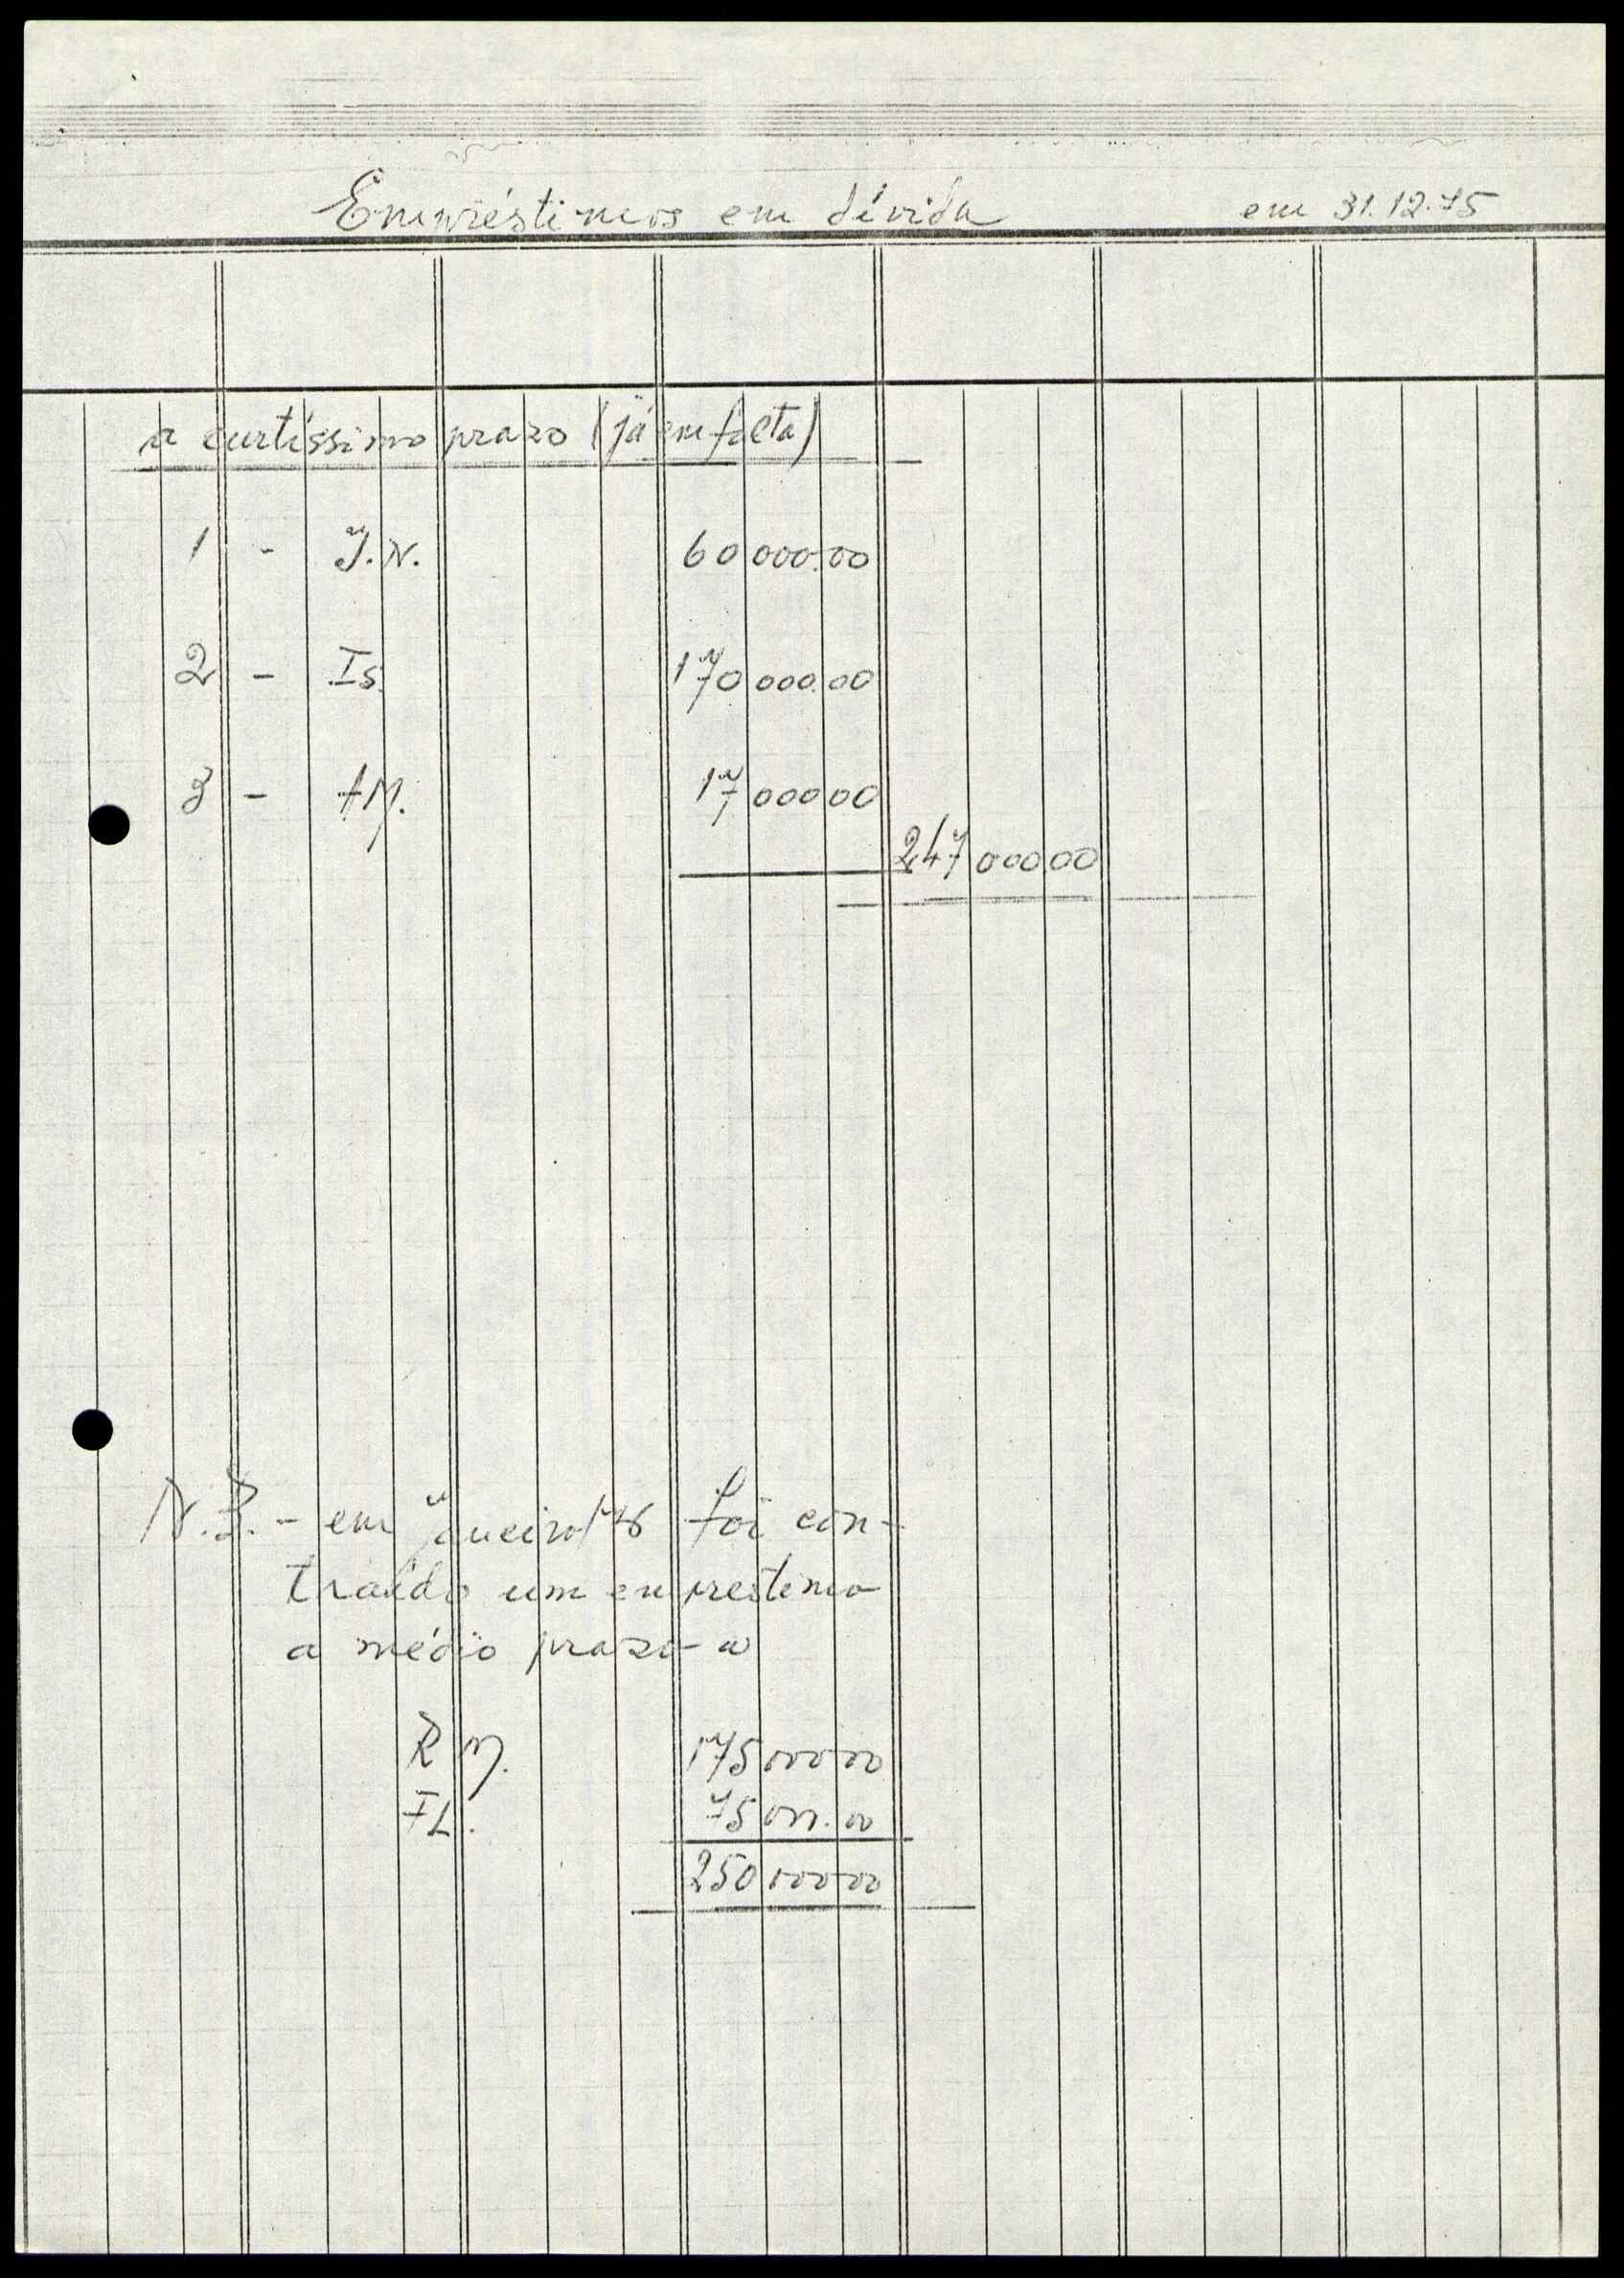 Empréstimos em dívida em 31.12.75
a curtíssimo prazo (já em falta)
1 - J.N. 60 000.00
2 - Is. 170 000.00
3 - AM. 17 000 00
247 000 00
N.B. - em Janeiro/76 foi con-
traído um emprestimo
a médio prazo a
R M. 175 000 00
FL. 75 000.00
250 000 00